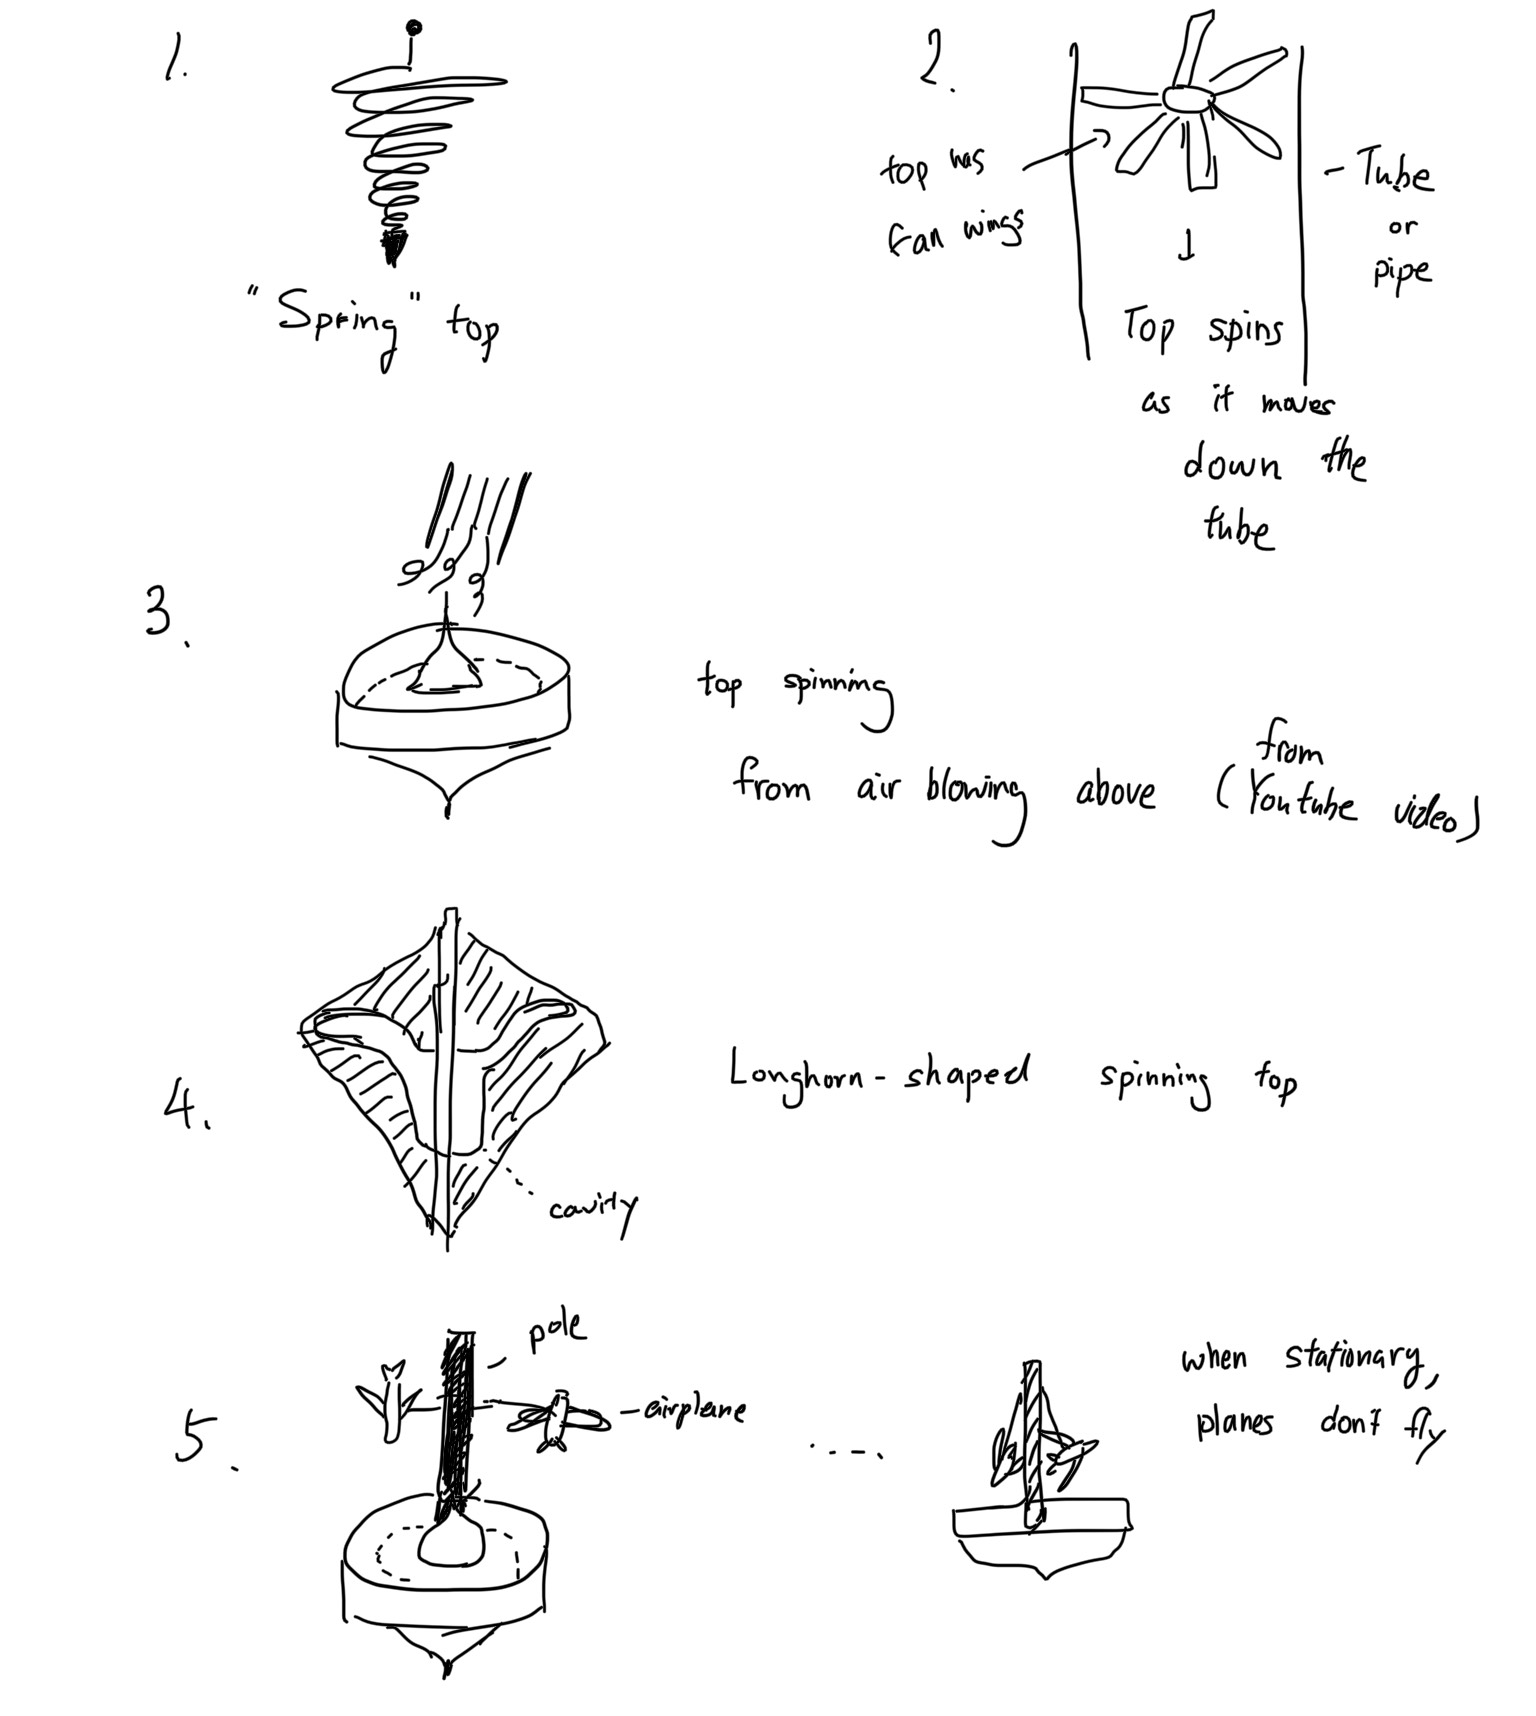 1.
"Spring" top
2.
top has
fan wings
- Tube
or
pipe
Top spins
as it moves
down the
tube
3.
top spinning
from air blowing above (from Youtube video)
4.
Longhorn-shaped spinning top
cavity
5.
pole
airplane
when stationary,
planes don't fly